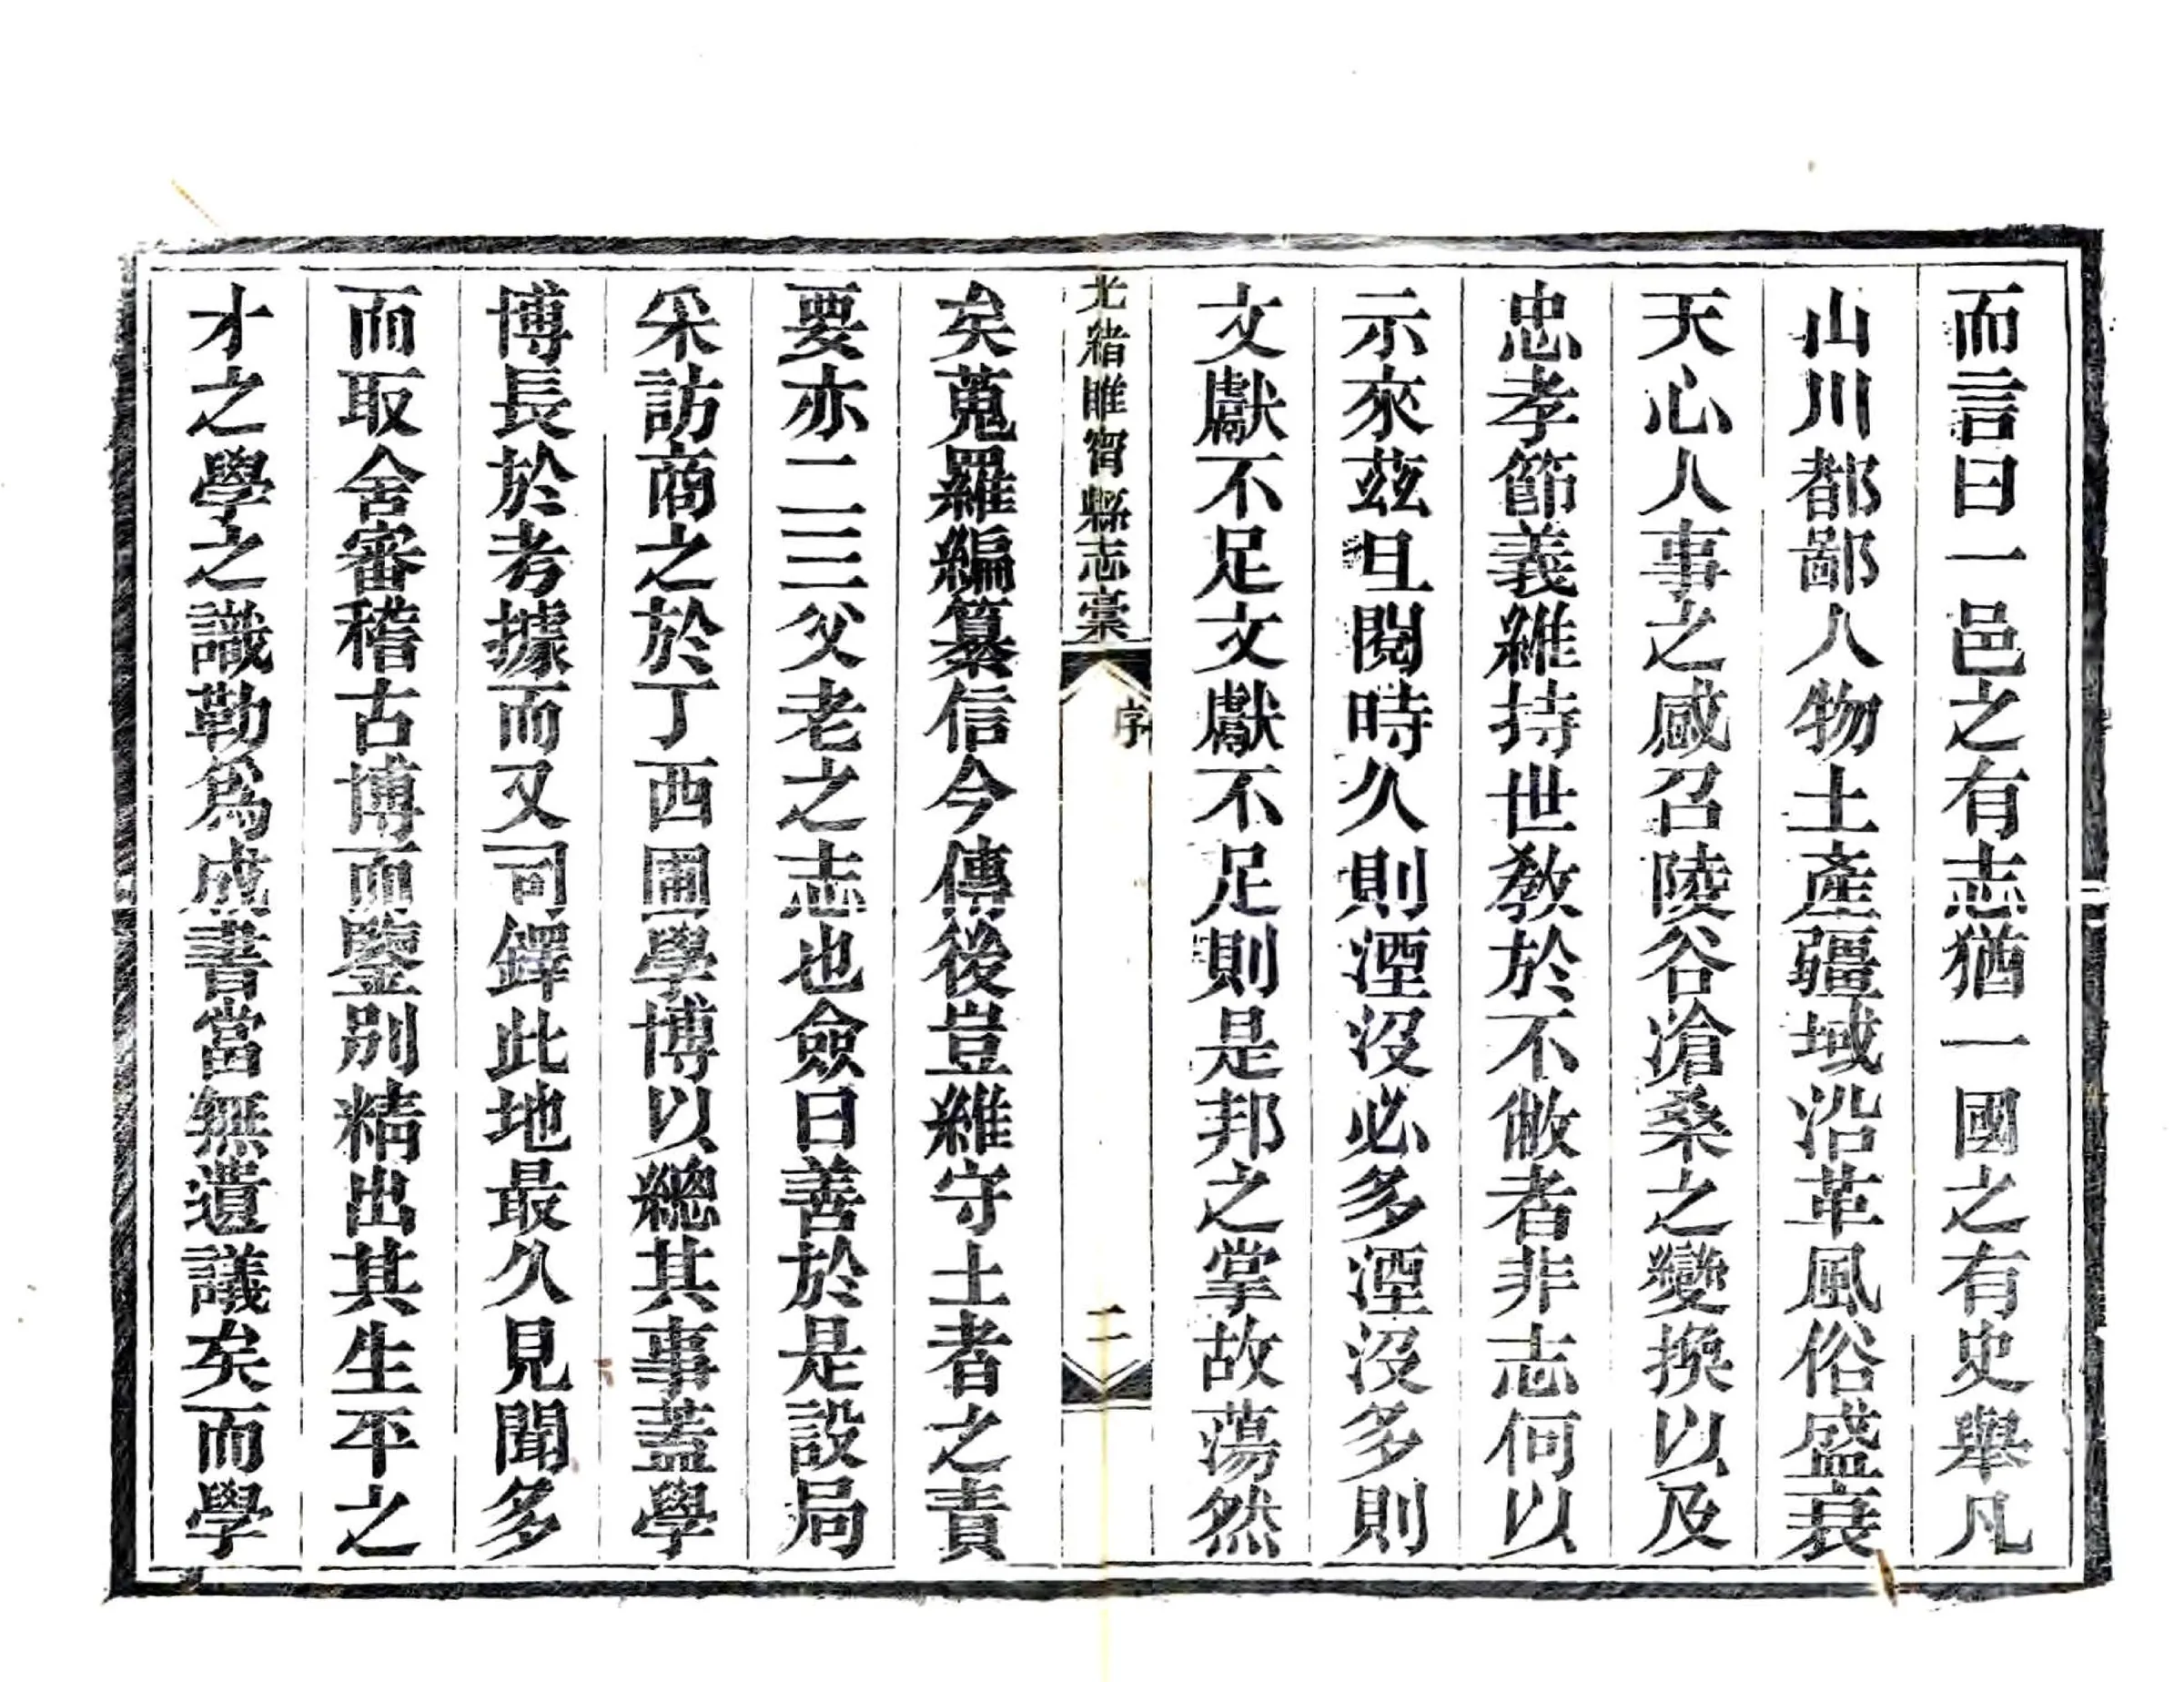 而言曰一邑之有志猶一國之有史舉凡
山川都鄙人物土產疆域沿革風俗盛衰
天心人事之感召陵谷滄桑之變換以及
忠孝節義維持世敎於不敝者非志何以
示來茲且閱時久則湮沒必多湮沒多則
文獻不足文獻不足則是邦之掌故蕩然
光緒睢甯縣志稾
序
二
矣蒐羅編纂信今傳後豈維守土者之責
要亦二三父老之志也僉曰善於是設局
采訪商之於丁西圃學博以總其事蓋學
博長於考據而又司鐸此地最久見聞多
而取舍審稽古博而鑒別精出其生平之
才之學之識勒爲成書當無遺議矣而學